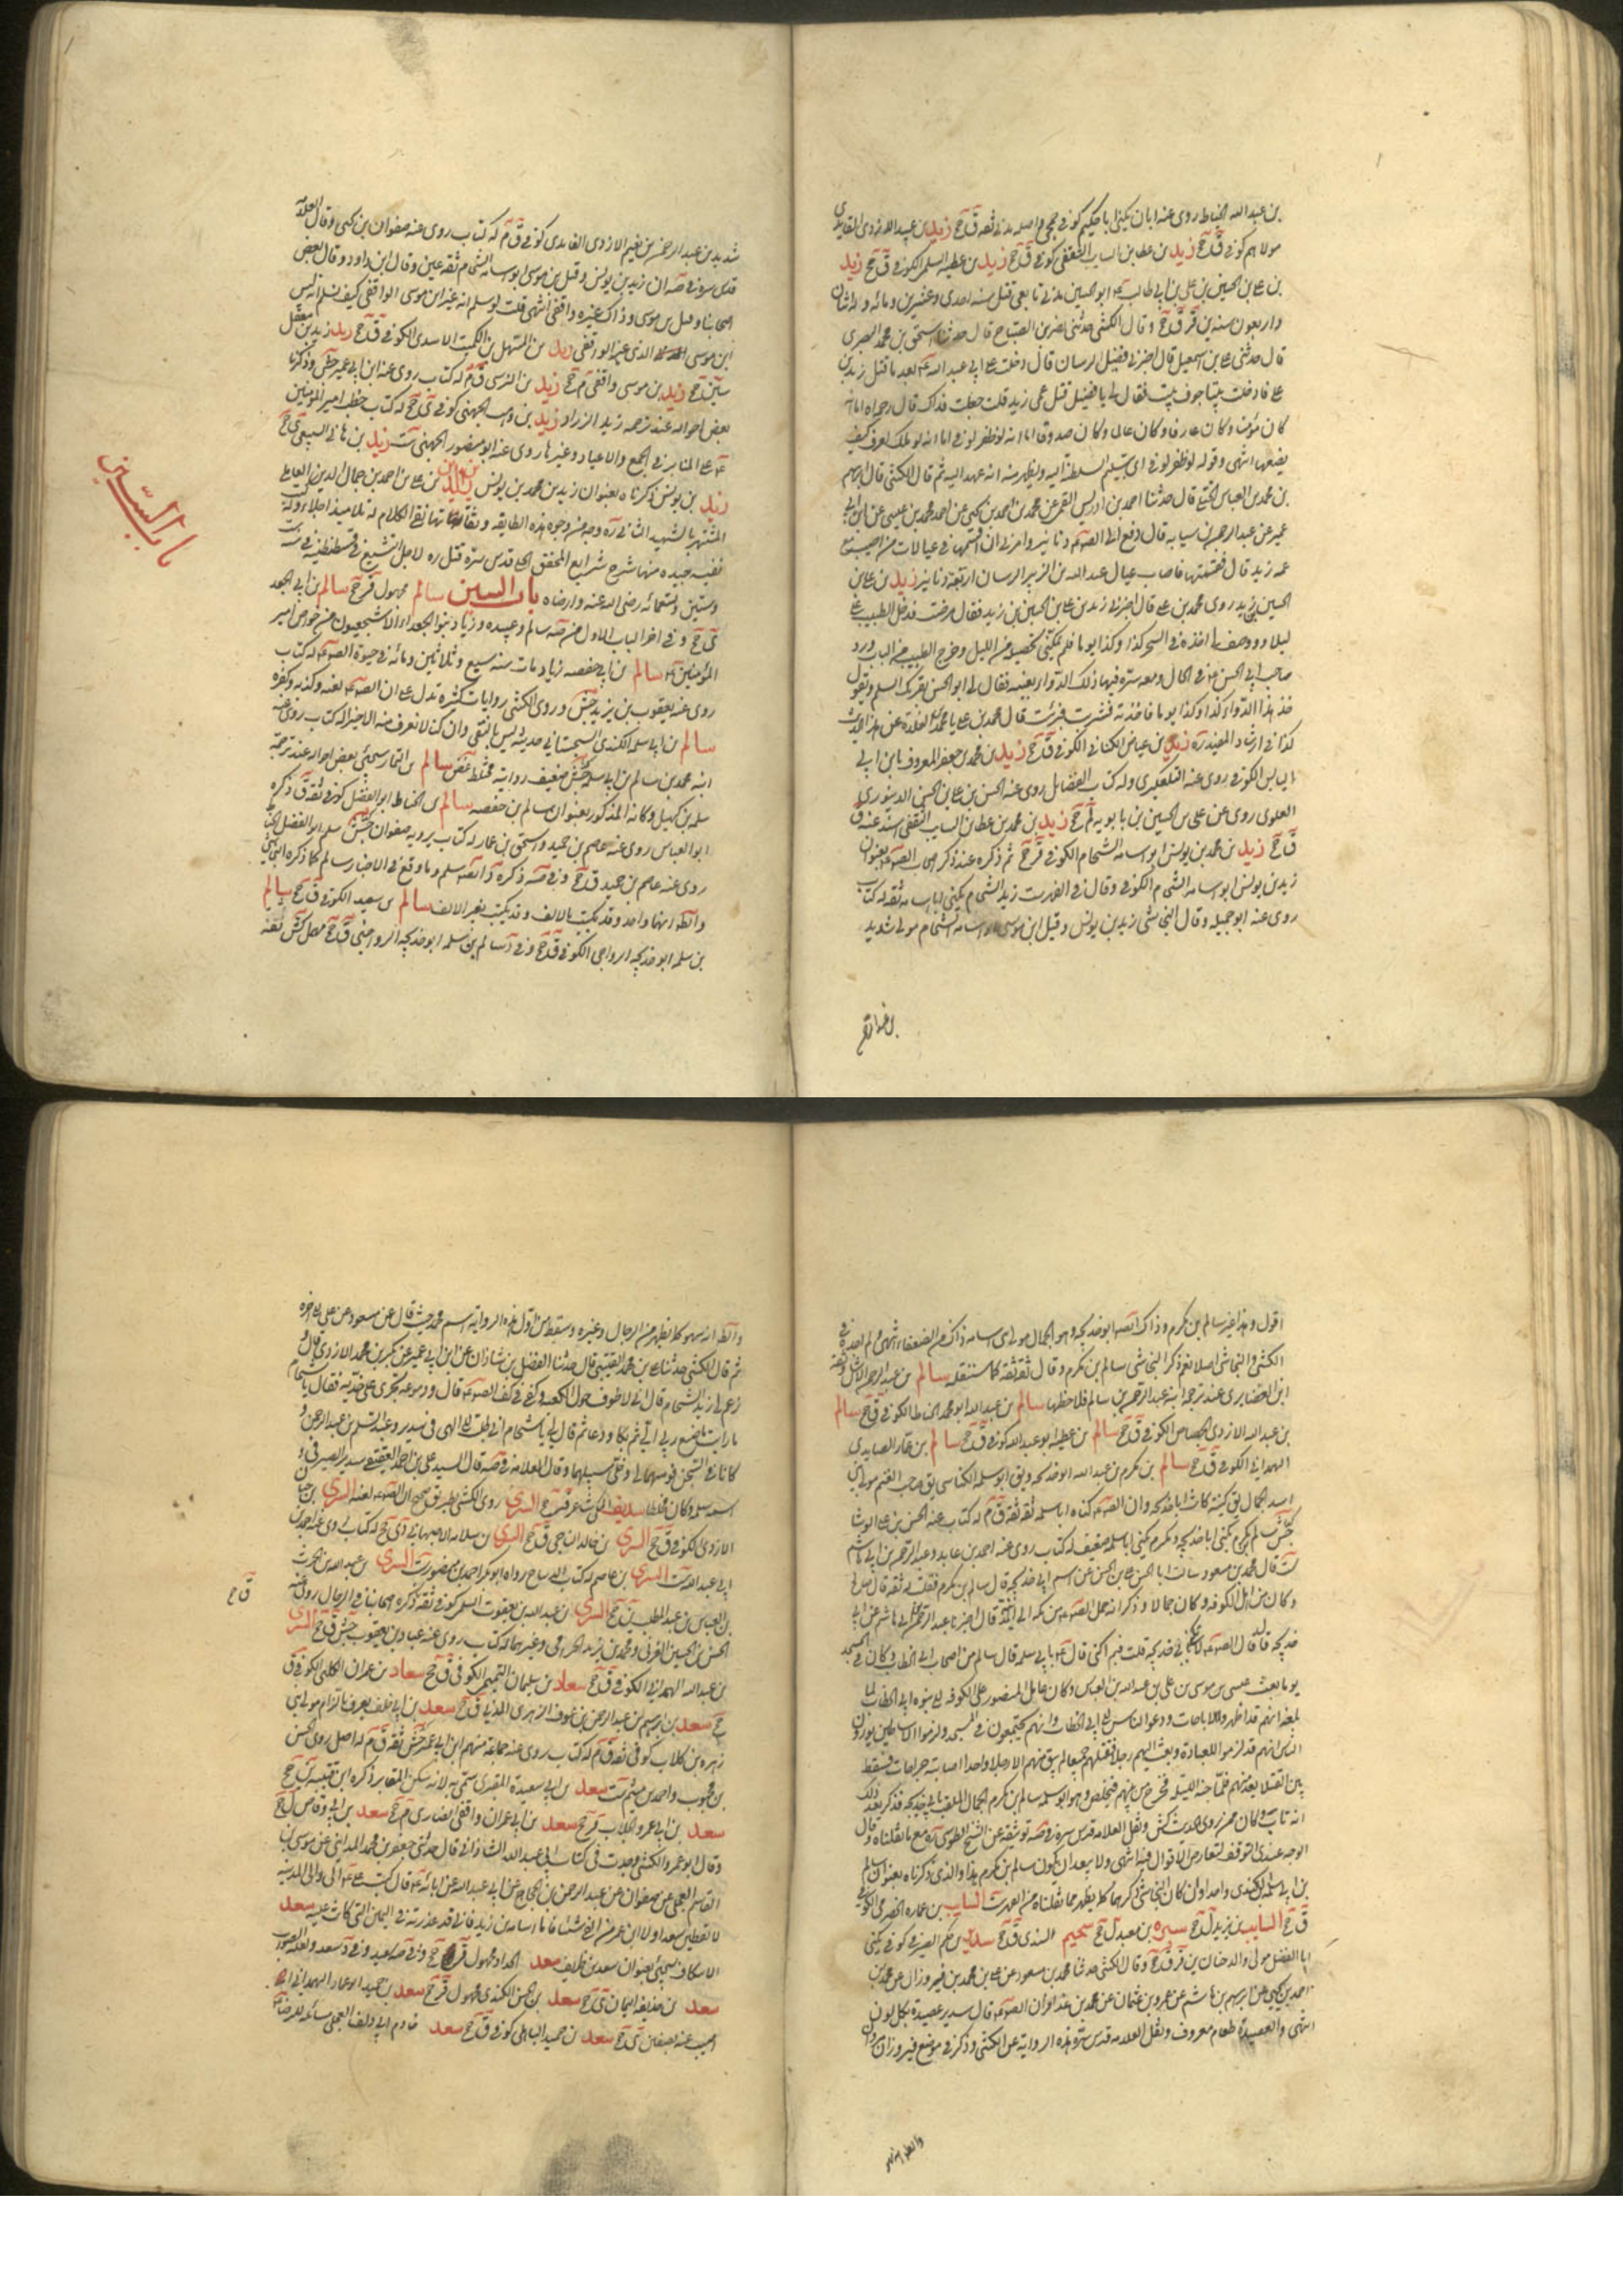 بن عبد الله الخياط روى عنه ابان يكنى ابا حكيم كوفي جمحي واصله مدني ثقه ق جح زيد بن عبد الله الازدي
مولاهم كوفي ق جح زيد بن عطا بن السايب الثقفي كوفي ق جح زيد بن عطيه السلمي الكوفي ق جح زيد
بن علي بن الحسين بن علي بن ابي طالب ع ابو الحسين مدني تابعي قتل سنه احدى وعشرين ومائه وله اثنان
واربعون سنه ين قر ق جح وقال الكشي حدثني نصر بن الصباح قال حدثنا اسحق بن محمد البصري
قال حدثني علي بن اسمعيل قال اخبرني فضيل الرسان قال دخلت على ابي عبد الله ع بعد ما قتل زيد بن
علي فادخلت بيتا جوف بيت فقال لي يا فضيل قتل عمي زيد قلت جعلت فداك قال رحمه الله اما انه
كان مؤمنا وكان عارفا وكان عالما وكان صدوقا اما انه لو ظفر لوفى اما انه لو ملك لعرف كيف
يضعها انتهى وقوله لو ظفر لوفى اي بتسليم السلطنة اليه ويظهر منه انه عهد اليه ثم قال الكشي قال ابراهيم
بن محمد بن العباس الختلي قال حدثنا احمد بن ادريس القمي عن محمد بن احمد بن يحيى عن احمد بن محمد بن عيسى عن ابن ابي
عمير عن عبد الرحمن بن سيابه قال دفع الي الصه ع دنانير وامرني ان اقسمها في عيالات من اصيب مع
عمه زيد قال فقسمتها فاصاب عيال عبد الله بن الزبير الرسان اربعة دنانير زيد بن علي بن
الحسين بن زيد روى محمد بن علي قال اخبرني زيد بن علي بن الحسين بن زيد فقال مرضت فدخل الطبيب علي
ليلا ووصف لي اخذه في السحر كذا وكذا يوما فلم يمكني تحصيله من الليل وخرج الطبيب من الباب وورد
صاحب ابي الحسن ع في الحال ومعه صرة فيها ذلك الدواء بعينه فقال لي ابو الحسن يقرئك السلم ويقول
خذ هذا الدواء كذا وكذا يوما فاخذته فشربت فبرئت قال محمد بن علي يا محمد اين الغلاة عن هذا الحديث
كذا في ارشاد المفيد ره زيد بن عياض الكناني الكوفي ق جح زيد بن محمد بن جعفر المعروف بابن ابي
الياس الكوفي روى عنه التلعكبري وله كتاب الفضايل روى عنه الحسن بن علي بن الحسن الدينوري
العلوي روى عن علي بن الحسين بن بابويه لم جح زيد بن محمد بن عطا بن السايب الثقفي اسند عنه ق
ق جح زيد بن محمد بن يونس ابو سامه الشحام الكوفي قر جح ثم ذكره عند ذكر اصحاب الصه ع بعنوان
زيد بن يونس ابو سامه الشحام الكوفي وقال في الفهرست زيد الشحام يكنى ابا سامه ثقه له كتاب
روى عنه ابو جميله وقال النجاشي زيد بن يونس وقيل ابن موسى ابو اسامه الشحام مولى شديد
شديد بن عبد الرحمن بن نعيم الازدي الغامدي كوفي ق م له كتاب روى عنه صفوان بن يحيى وقال العلامه
قدس سره في صه ان زيد بن يونس وقيل بن موسى ابو سامه الشحام ثقه عين وقال ابن داود وقال بعض
اصحابنا وقيل بن موسى وذاك غيره واقفي انتهى قلت لو سلم انه غير ابن موسى الواقفي كيف نسلم انه ليس
ابن موسى الذي غير الواقفي زيد بن المستهل بن الكميت الاسدي الكوفي ق جح زيد بن معقل
سين جح زيد بن موسى واقفي م جح زيد النرسي ق م له كتاب روى عنه ابن ابي عمير جش وذكرنا
بعض احواله عند ترجمه زيد الزراد زيد بن وهب الجهني كوفي ي جح له كتاب خطب امير المؤمنين
ع على المنابر في الجمع والاعياد وغيرها روى عنه ابو منصور الجهني ست زيد بن هاني السبيعي ي جح
زيد بن يونس ذكرناه بعنوان زيد بن محمد بن يونس زين الدين بن علي بن احمد بن جمال الدين العاملي
المشتهر بالشهيد الثاني ره وجه من وجوه هذه الطايفه وثقاتها نقي الكلام له تلاميذ اجلاء وله كتب
نفيسه جيده منها شرح شرايع المحقق الحلي قدس سره قتل ره لاجل التشيع في قسطنطنيه في سنه ست
وستين وتسعمائه رضي الله عنه وارضاه باب السين سالم مجهول قر جح سالم بن ابي الجعد
ي جح وفي اخر الباب الاول من صه سالم وعبيده وزياد بنو الجعد الاشجعيون من خواص امير
المؤمنين ع سالم بن ابي حفصه زياد مات سنه سبع وثلاثين ومائه في حيوة الصه ع له كتاب
روى عنه يعقوب بن يزيد جش وروى الكشي روايات كثيره تدل على ان الصه ع لعنه وكذبه وكفره
سالم بن ابي سلمه الكندي السجستاني حديثه ليس بالنقي وان كنا لا نعرف منه الا خيرا له كتاب روى عنه
ابنه محمد بن سالم بن ابي سلمه جش ضعيف روايته مختلط غض سالم بن التمار سيجيء بعض احواله عند ترجمة
سلمه بن كهيل وكانه المذكور بعنوان سالم بن حفصه سالم بن الحناط ابو الفضل كوفي ثقه ق ذكره
ابو العباس روى عنه عاصم بن حميد واسحق بن عمار له كتاب يرويه صفوان جش سلم ابو الفضل الحناط
روى عنه عاصم بن حميد ق جح وفي صه ذكره د انه سلم وما وقع في الاخبار سالم كما ذكره النجاشي
والظه انهما واحد وقد يكتب بالالف وقد يكتب بغير الالف سالم بن سعيد الكوفي ق جح سالم
بن سلمه ابو خديجه الرواجني الكوفي ق جح وفي د سالم بن سلمه ابو خديجه الرواجني ق جح مهمل كش ثقه
باب السين
اقول وهذا غير سالم بن مكرم وذاك ايضا ابو خديجه وهو الجمال مولى بني اسد وذاك من الضعفاء انتهى ولم اجده في
الكشي والنجاشي اصلا نعم ذكر النجاشي سالم بن مكرم وقال ثقه ثقه كما سننقله سالم بن عبد الرحمن الاشل ثقه
ابن الغضايري عند ترجمه ابنه عبد الرحمن بن سالم فلاحظها سالم بن عبد الله ابو محمد الحناط الكوفي ق جح سالم
بن عبد الله الازدي الجصاص الكوفي ق جح سالم بن عطيه ابو عبد الله كوفي ق جح سالم بن عمار الصايدي
الهمداني الكوفي ق جح سالم بن مكرم بن عبد الله ابو خديجه ويق ابو سلمه الكناسي يق صاحب الغنم مولى بني
اسد الجمال يق كنيته كانت ابا خديجه وان الصه ع كناه ابا سلمه ثقه ثقه ق م له كتاب عنه الحسن بن علي الوشا
جش سالم بن مكرم يكنى ابا خديجه ومكرم يكنى ابا سلمه ضعيف له كتاب روى عنه احمد بن عايذ وعبد الرحمن بن ابي هاشم
ست قال محمد بن مسعود سالت ابا الحسن علي بن الحسن عن اسم ابي خديجه قال سالم بن مكرم فقلت له ثقه قال صالح
وكان من اهل الكوفه وكان جمالا وذكر انه حمل الصه ع من مكه الى المدينه قال اخبرنا عبد الرحمن بن ابي هاشم عن ابي
خديجه قال قال الصه ع لا تكتن بابي خديجه قلت فبم اكتني قال ع بابي سلمه قال سالم من اصحاب ابي الخطاب وكان في المسجد
يوما بعث عيسى بن موسى بن علي بن عبد الله بن العباس وكان عامل المنصور على الكوفه الى بنوه ابي الخطاب لما
بلغه انهم قد اظهروا الاباحات ودعوا الناس الى ابي الخطاب وانهم يجتمعون في المسجد ولزموا الاساطين يورون
الناس انهم قد لزموا للعباده وبعث اليهم رجلا فقتلهم جميعا لم يبق منهم الا رجلا واحدا اصابته جراحات فسقط
بين القتلا يعد منهم فلما جنه الليل فخرج من بينهم فتخلص وهو ابو سلمه سالم بن مكرم الجمال الملقب بابي خديجه فذكر بعد ذلك
انه تاب وكان ممن يروي الحديث كش ونقل العلامه قدس سره في صه توثيقه عن الشيخ الطوسي ره مع ما نقلناه وقال
الوجه عندي التوقف لتعارض الاقوال فيه انتهى ولا يبعد ان يكون سالم بن مكرم هذا والذي ذكرناه بعنوان سالم
بن ابي سلمه الكندي واحدا وان كان النجاشي ذكرهما كما يظهر مما نقلناه من الفهرست السايب بن عماره الحضرمي الكوفي
ق جح السايب بن يزيد ل جح سبره بن معبد ل جح سحيم السندي ق جح سدير بن حكيم الصيرفي كوفي يكنى
ابا الفضل مولى والد حنان ين قر ق جح وقال الكشي حدثنا محمد بن مسعود عن علي بن محمد بن فيروزان عن محمد بن
احمد بن يحيى عن ابرهيم بن هاشم عن عمرو بن عثمان عن محمد بن عذافر ان الصه ع قال سدير عصيدة بكل لون
انتهى والعصيدة طعام معروف ونقل العلامه قدس سره هذه الرواية عن الكشي وذكر في موضع فيروزان مروان
والظه انه سهو
والظه انه سهو كما يظهر من الرجال وغيره وسقط من اول هذه الرواية اسم محمد حيث قال عن مسعود عن علي الى اخره
ثم قال الكشي حدثنا علي بن محمد القتيبي قال حدثنا الفضل بن شاذان عن ابن ابي عمير عن بكر بن محمد الازدي قال و
زعم لي زيد الشحام قال اني لاطوف حول الكعبه وكفي في كف الصه ع قال ودموعه تجري على خديه فقال يا شحام
ما رايت ما صنع ربي الي ثم بكا ودعا ثم قال لي يا شحام اني طلبت الى الهي في سدير وعبد السلم بن عبد الرحمن و
كانا في السجن فوهبهما لي وخلى سبيلهما وقال العلامه في صه قال السيد علي بن احمد العقيقي سدير الصيرفي و
اسمه سلمه وكان مخلطا سديف المكي شاعر قر جح السري روى الكشي بطريق صحيح ان الصه ع لعنه السري بن حيان
الازدي الكوفي ق جح السري بن خالد الناجي ق جح السري بن سلامه الاصبهاني دي جح له كتاب روى عنه احمد بن
ابي عبد الله ست السري بن عاصم له كتاب الديباج رواه ابو بكر احمد بن منصور ست السري بن عبد الله بن الحرث
بن العباس بن عبد المطلب ين جح السري بن عبد الله بن يعقوب السلمي كوفي ثقه ذكره اصحابنا في الرجال روى عنه
الحسن بن الحسين العرني ومحمد بن يزيد الحرامي وغيرهما له كتاب روى عنه عباد بن يعقوب جش ق جح السري
بن عبد الله الهمداني الكوفي ق جح سعاد بن سليمان التميمي الكوفي ق جح سعاد بن عمران الكلبي الكوفي ق
جح سعد بن ابرهيم بن عبد الرحمن بن عوف الزهري المدني ق جح سعد بن ابي خلف يعرف بالزام مولى بني
زهره بن كلاب كوفي ثقه ق م له كتاب روى عنه جماعه منهم ابن ابي عمير جش ثقه ق م له اصل روى الحسن
بن محبوب واحمد بن ميثم ست سعد بن ابي سعيد المقبري سمي به لانه سكن المقابر ذكره ابن قتيبه ين جح
سعد بن ابي عمرو الجلاب قر جح سعد بن ابي عمران واقفي انصاري م جح سعد بن ابي وقاص ل جح
وقال ابو عمرو الكشي وجدت في كتاب ابي عبد الله الشاذاني قال حدثني جعفر بن محمد المدايني عن موسى بن
القاسم العجلي عن صفوان عن عبد الرحمن بن الحجاج عن ابي عبد الله عن ابائه ع قال كتب علي ع الى والي المدينه
لا تعطين سعدا ولا ابن عمر من الفيء شيئا فاما اسامه بن زيد فاني قد عذرته في اليمين التي كانت عليه سعد
الاسكاف سيجيء بعنوان سعد بن ظريف سعد الحداد مجهول قر جح وفي صه سعيد وفي د سعد ولعله الصواب
سعد بن حذيفه اليمان ي جح سعد بن الحسن الكندي مجهول قر جح سعد بن حميد ابو عمار الهمداني
اصيب عينه بصفين ي جح سعد بن حميد الباهلي كوفي ق جح سعد خادم ابي دلف العجلي مسائله للرضا ع
ق جح